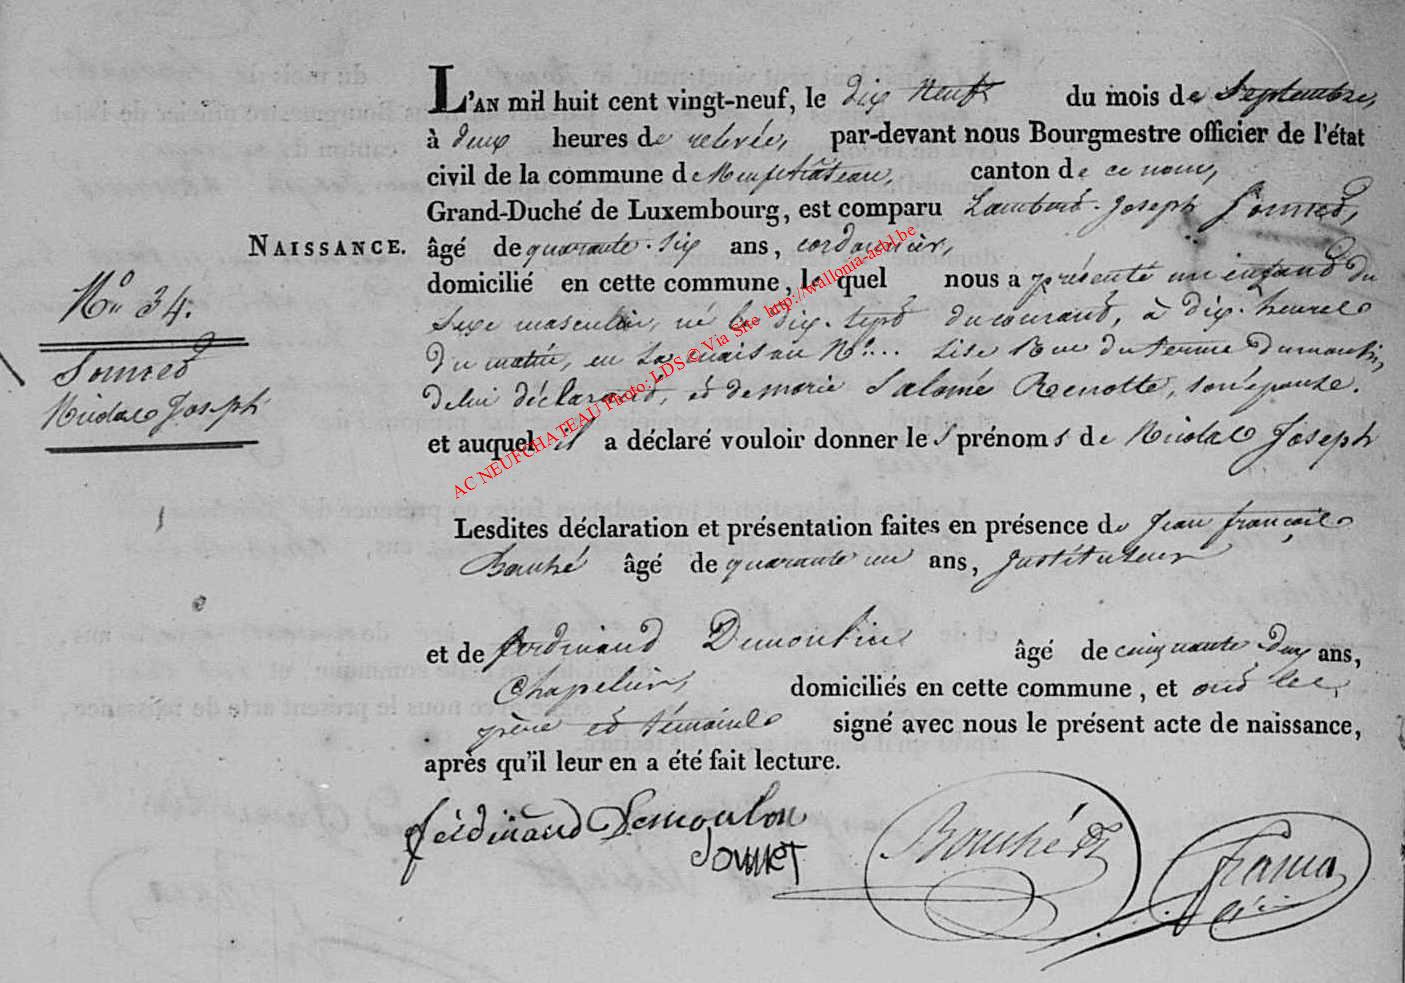 L'AN mil huit cent vingt-neuf, le dix neuf du mois de Septembre,
à deux heures de relevée, par-devant nous Bourgmestre officier de l'état
civil de la commune de Neufchâteau, canton de ce nom,
Grand-Duché de Luxembourg, est comparu Lambert Joseph Sonnet,
NAISSANCE. âgé de quarante-six ans, cordonnier,
domicilié en cette commune, le quel nous a présenté un enfant du
N° 34.
Sexe masculin, né le dix-sept du courant, à dix heures
du matin, en sa maison N° ... Sise Rue du terme dumoulin,
Sonnet
Nicolas Joseph
de lui déclarant, et de marie Salomé Renotte, son épouse.
et auquel il a déclaré vouloir donner les prénoms de Nicolas Joseph
AC NEUFCHATEAU Photo: LDS © Via Site http://wallonia-asbl.be
Lesdites déclaration et présentation faites en présence de Jean françois
Bouché âgé de quarante un ans, Instituteur
et de ferdinand Dumoulin âgé de cinquante deux ans,
Chapelier, domiciliés en cette commune, et ont les
père et témoins signé avec nous le présent acte de naissance,
après qu'il leur en a été fait lecture.
ferdinand Desmoulon
Sonnet
Bouché